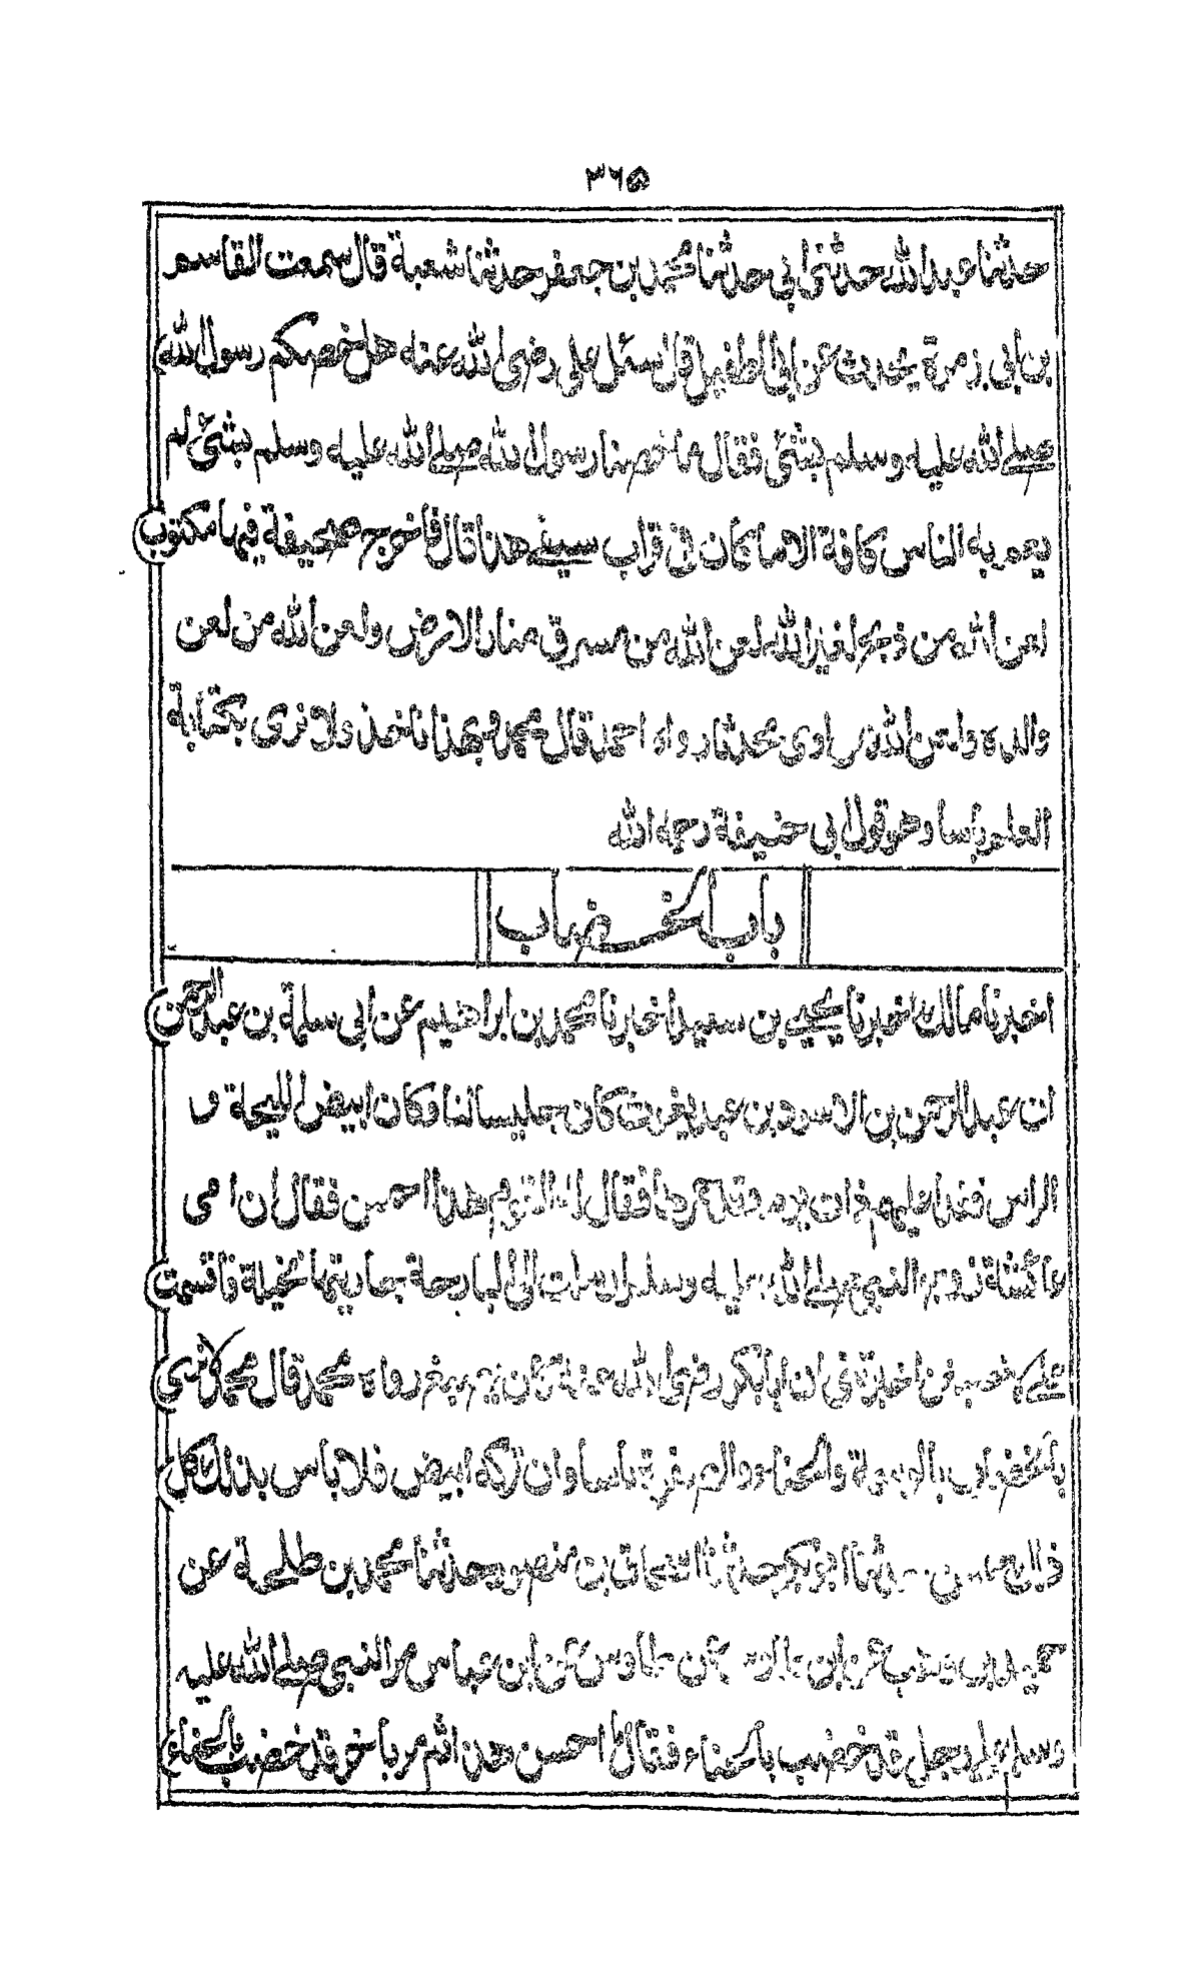 ۳۶۵
حدثنا عبد الله حدثنی ابی حدثنا محمد بن جعفر حدثنا شعبة قال سمعت القاسم
بن ابی بزة یحدث عن ابی الطفیل قال سئل علی رضی الله عنه هل خصکم رسول الله
صلے الله علیه وسلم بشئ فقال ما خصنا رسول الله صلے الله علیه وسلم بشئ لم
یعم به الناس کافة الا ما کان فی قراب سیفے هذا قال فاخرج صحیفة فیها مکتوب
لعن الله من ذبح لغیر الله لعن الله من سرق منار الارض ولعن الله من لعن
والده ولعن الله من اوی محدثا رواه احمد قال محمد وبهذا ناخذ ولا نری بکتابة
العلم باسا وهو قول ابی حنیفة رحمه الله
باب الخضاب
اخبرنا مالك اخبرنا یحیے بن سعید اخبرنا محمد بن ابراهیم عن ابی سلمة بن عبد الرحمن
ان عبد الرحمن بن الاسود بن عبد یغوث کان جلیسا لنا وکان ابیض اللحیة و
الراس فغدا علیهم ذات یوم وقد حمرها فقال له القوم هذا احسن فقال ان امی
عائشة زوج النبی صلے الله علیه وسلم ارسلت الی البارحة جاریتها نخیلة فاقسمت
علے لاصبغن اخبرتنی ان ابا بکر رضی الله عنه کان یصبغ رواه محمد قال محمد لا نری
بالخضاب بالوسمة والحناء والصفرة باسا وان ترکه ابیض فلا باس بذلك کل
ذلك حسن حدثنا ابو بکر حدثنا اسحاق بن منصور حدثنا محمد بن طلحة عن
حمید بن وهب عن ابن طاوس عن طاوس عن ابن عباس مر النبی صلے الله علیه
وسلم علی رجل قد خضب بالحناء فقال ما احسن هذا ثم مر باخر قد خضب بالحناء